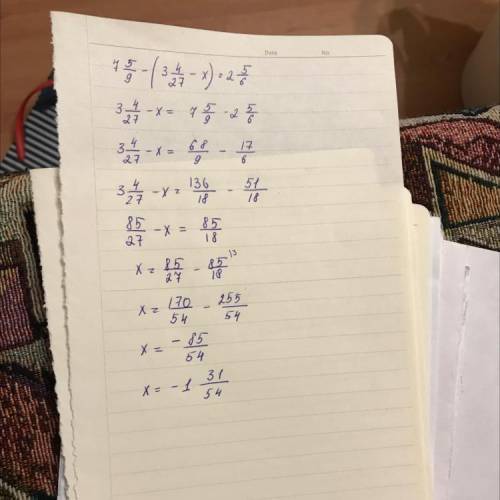 Date No
7 5/9 - (3 4/27 - x) = 2 5/6
3 4/27 - x = 7 5/9 - 2 5/6
3 4/27 - x = 68/9 - 17/6
3 4/27 - x = 136/18 - 51/18
85/27 - x = 85/18
x = 85/27 - 85/18 13
x = 170/54 - 255/54
x = -85/54
x = -1 31/54